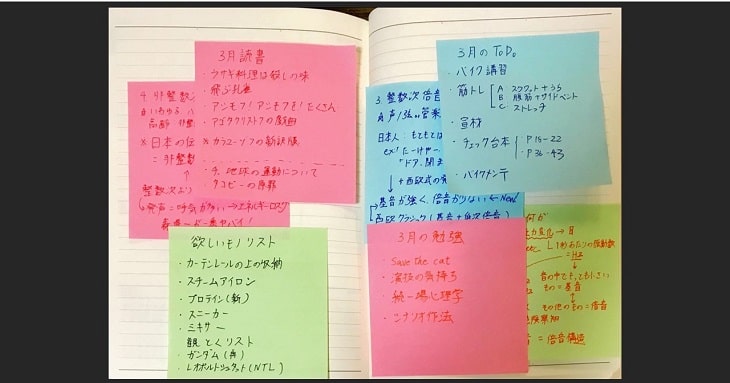 3月読書
・ウサギ料理は殺しの味
・飛ぶ孔雀
・アンモフ!アンモフを!たくさん
・アゴタクリストフの戯曲
・カラマーゾフの新訳版
・チ。地球の運動について
・タコピーの原罪
4 非整数
高齢
※日本の伝
=非整数
整数次より
↳発声=呼気が多い→エネルギーロス
欲しいものリスト
・カーテンレールの上の収納
・スチームアイロン
・プロテイン(新)
・スニーカー
・ミキサー
観とくリスト
・ガンダム(再)
・レオポルトシュタット(NTL)
3月のToDo
・バイク講習
・筋トレ
A スクワット+うら
B 腹筋+サイドベント
C ストレッチ
・宣材
・チェック台本
P.15-22
P.36-43
・バイクメンテ
3 整数次倍音
日本人:もともとは
ex)
「ドア、閉ま
+西欧式の発
基音が強く、倍音が少ない←New!
西欧クラシック(基音+低次倍音)
3月の勉強
・Save the cat
・演技の気持ち
・続・一場心理学
・シナリオ作法
何が
→耳
1秒あたりの振動数
=Hz
音の中でもっとも小さい
もの=基音
その他のもの=倍音
=倍音構造